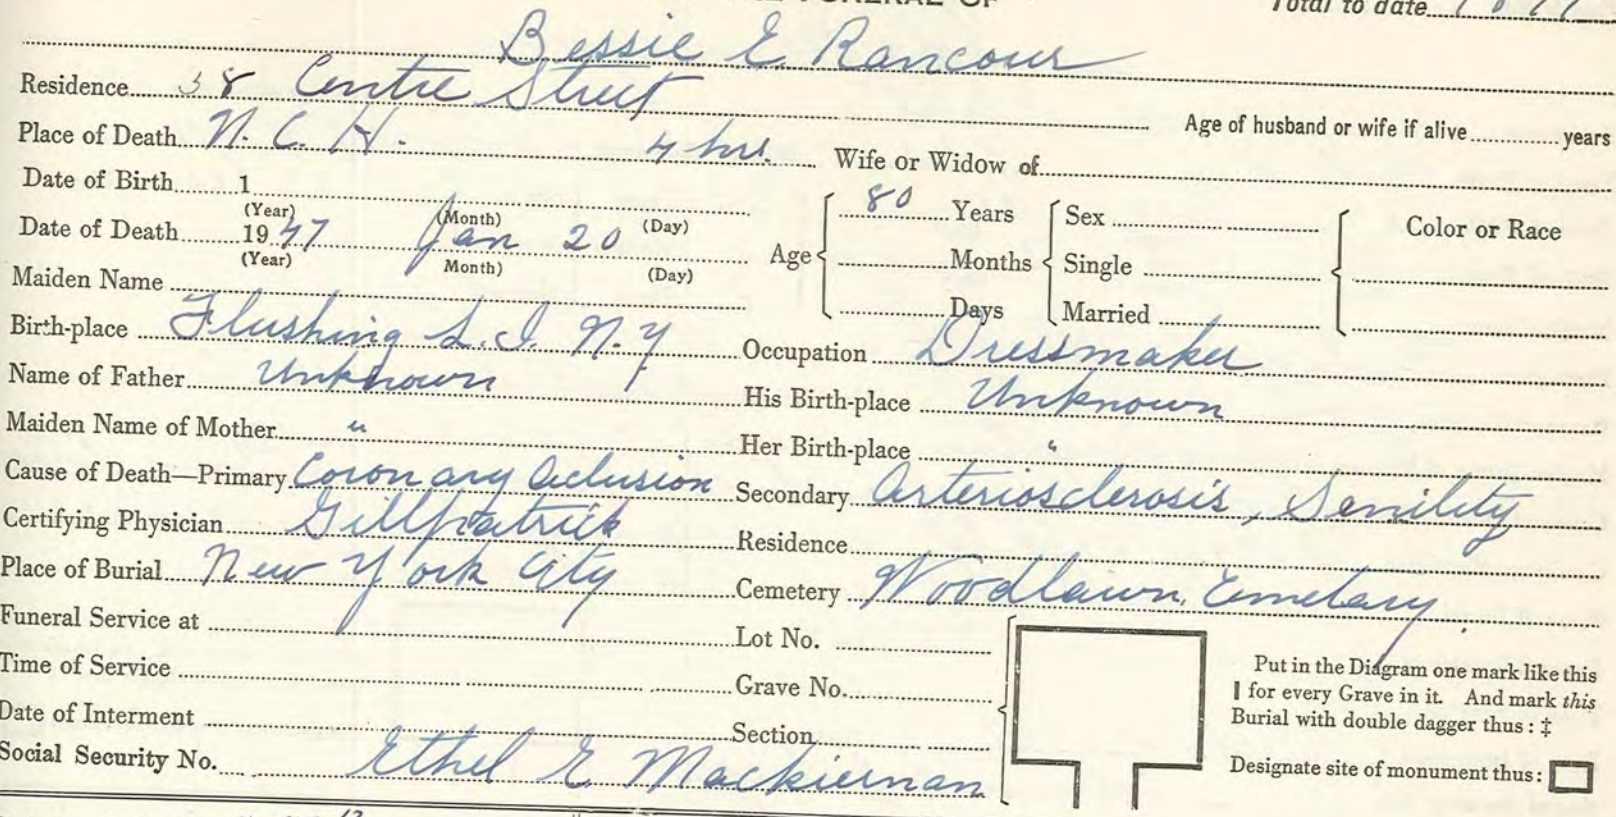 THE FUNERAL OF
Total to date
Bessie E. Rancour
Residence 38 Centre Street
Age of husband or wife if alive years
Place of Death N. C. H. 4 hrs. Wife or Widow of
Date of Birth 1
(Year) (Month) (Day)
Date of Death 1947 Jan 20
(Year) Month) (Day)
Age 80 Years Months Days
Sex Single Married
Color or Race
Maiden Name
Birth-place Flushing L.I. N.Y Occupation Dressmaker
Name of Father Unknown His Birth-place Unknown
Maiden Name of Mother " Her Birth-place "
Cause of Death—Primary Coronary Oclusion Secondary Arteriosclerosis, Senility
Certifying Physician Gillpatrick Residence
Place of Burial New York City Cemetery Woodlawn Cemetary.
Funeral Service at Lot No.
Time of Service Grave No.
Date of Interment Section
Social Security No. Ethel E Mackiernan
Put in the Diagram one mark like this
I for every Grave in it. And mark this
Burial with double dagger thus: ‡
Designate site of monument thus: